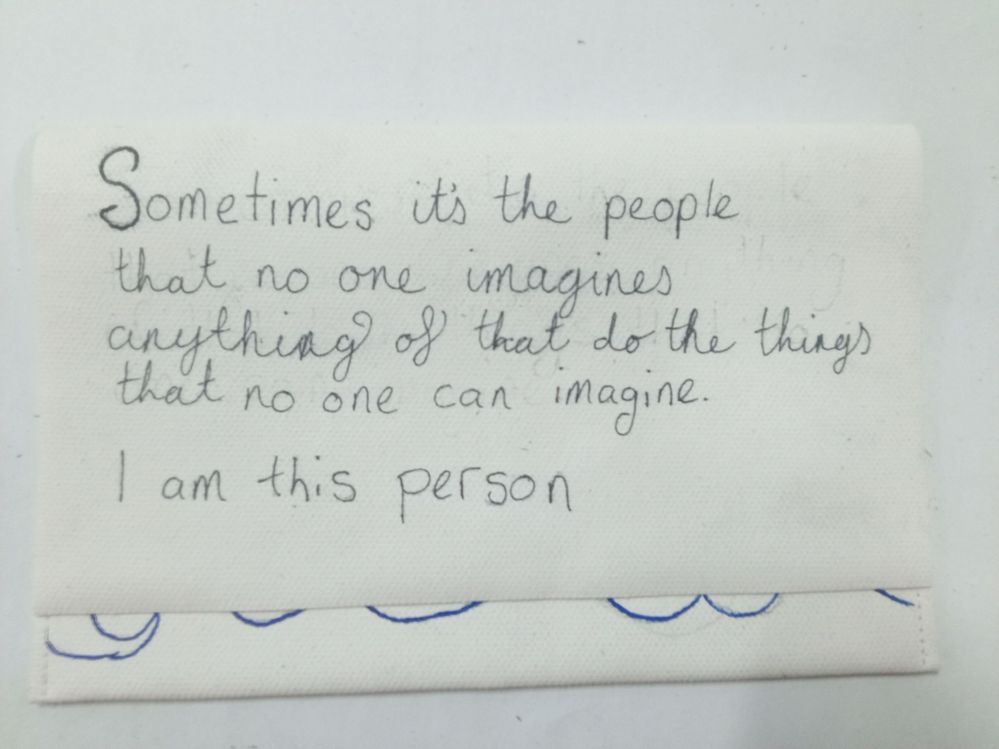 Sometimes it's the people
that no one imagines
anything of that do the things
that no one can imagine.
I am this person